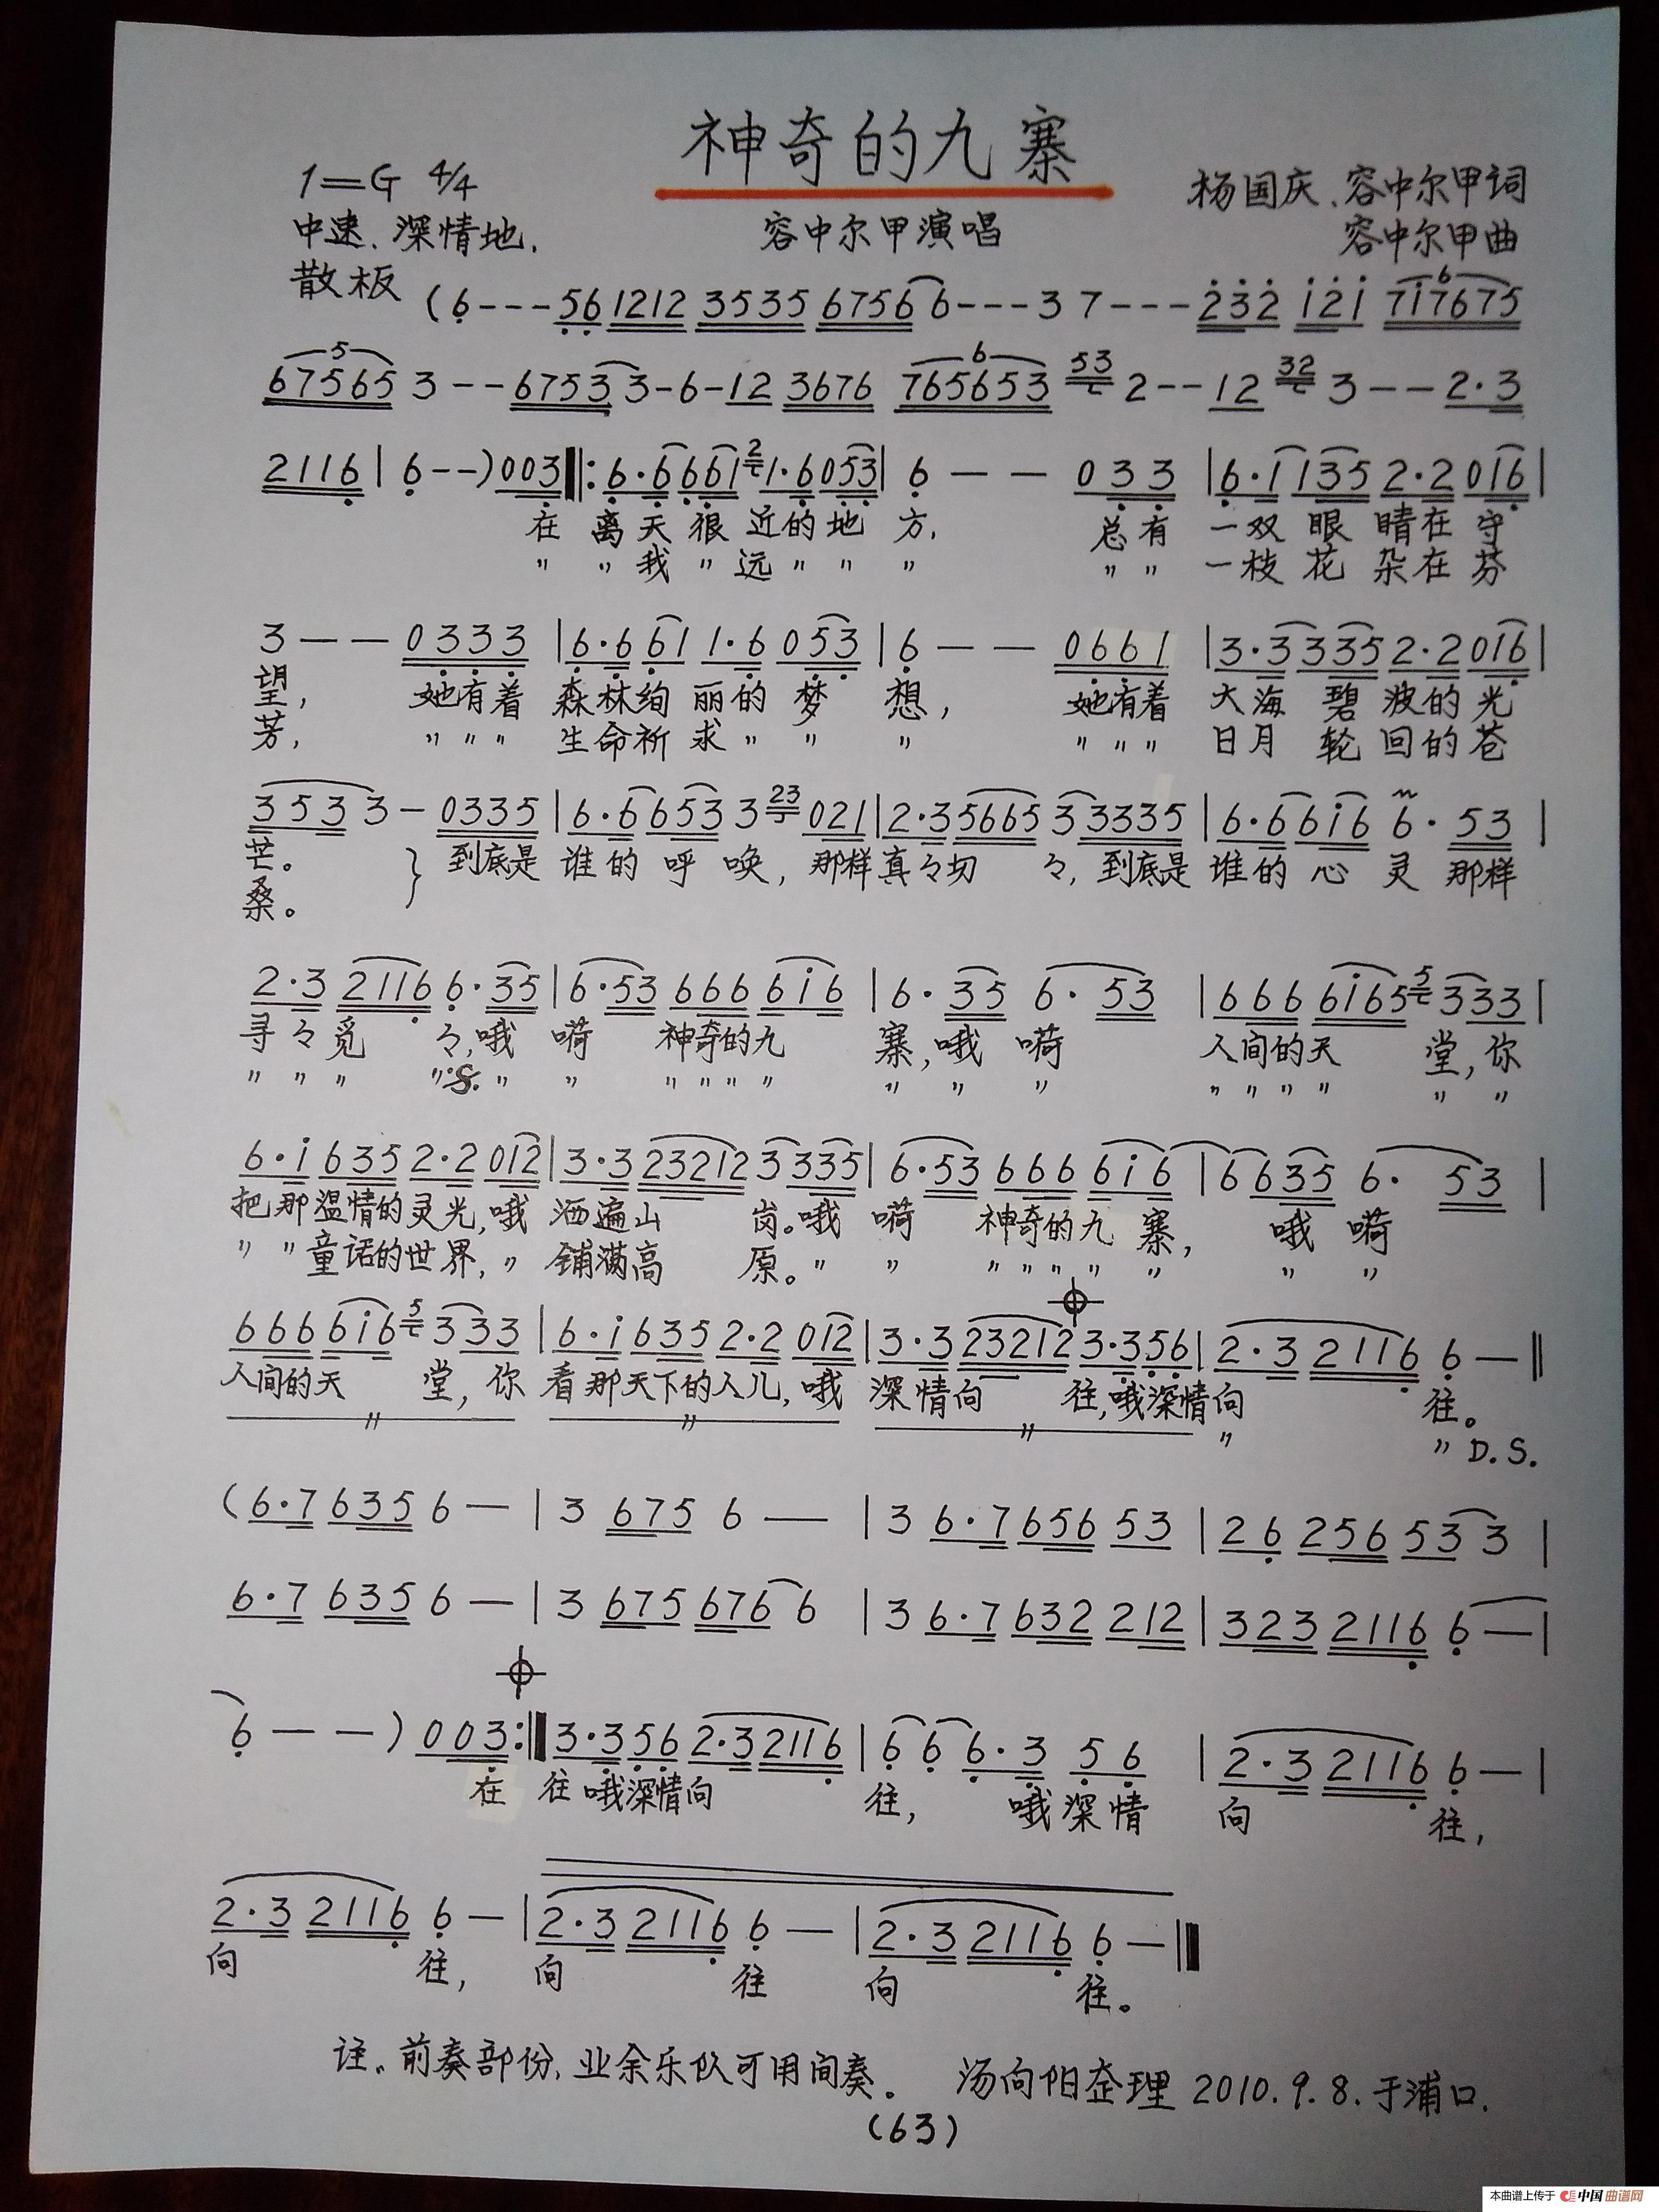 神奇的九寨
1=G 4/4
杨国庆、容中尔甲词
中速、深情地.
容中尔甲演唱
容中尔甲曲
散板 (6---56 1212 3535 6756 6---3 7---232 121 7176765
5 6
67565 3--6753 3-6-12 3676 765653 53 2--12 32 3--2·3
2116 | 6--) 003 ‖: 6·6 661 2 1·6 053 | 6 — — 033 | 6·1 135 2·2 016 |
在 离天很近的地方, 总有 一双眼睛在守
" "我"远" " " " " 一枝花朵在芬
3 — — 0333 | 6·6 61 1·6 053 | 6 — — 0661 | 3·3 335 2·2 016 |
望, 她有着 森林绚丽的梦想, 她有着 大海碧波的光
芳, " " " 生命祈求" " " " " " 日月轮回的苍
353 3 — 0335 | 6·6 653 3 23 021 | 2·3 5665 3 3335 | 6·6 6i6 6· 53 |
芒。 到底是 谁的呼唤, 那样真々切々, 到底是 谁的心灵 那样
桑。
2·3 2116 6·35 | 6·53 666 6i6 | 6·35 6·53 | 666 6i65 5 333 |
寻々觅々,哦 嗬 神奇的九寨,哦 嗬 人间的天堂,你
" " " " :S. " " " " " " " " " " " " " " "
6·i 635 2·2 012 | 3·3 23212 3 335 | 6·53 666 6i6 | 6635 6· 53 |
把那温情的灵光,哦 洒遍山岗。哦 嗬 神奇的九寨, 哦 嗬
" "童话的世界," 铺满高原。" " " " " " " " "
666 6i6 5 333 | 6·i 635 2·2 012 | 3·3 23212 3·356 | 2·3 2116 6 — ‖
人间的天堂,你 看那天下的人儿,哦 深情向往,哦深情向往。
" " " " " D.S.
(6·7 635 6 — | 3 675 6 — | 3 6·7 656 53 | 26 256 53 3 |
6·7 635 6 — | 3 675 676 6 | 3 6·7 632 212 | 323 2116 6 — |
6 — — ) 003 :‖ 3·356 2·3 2116 | 6 6 6·3 5 6 | 2·3 2116 6 — |
在 往哦深情向往, 哦深情 向往,
2·3 2116 6 — | 2·3 2116 6 — | 2·3 2116 6 — ‖
向往, 向往 向往。
注。前奏部份,业余乐队可用间奏。 汤向阳整理 2010.9.8.于浦口.
(63)
本曲谱上传于 中国曲谱网